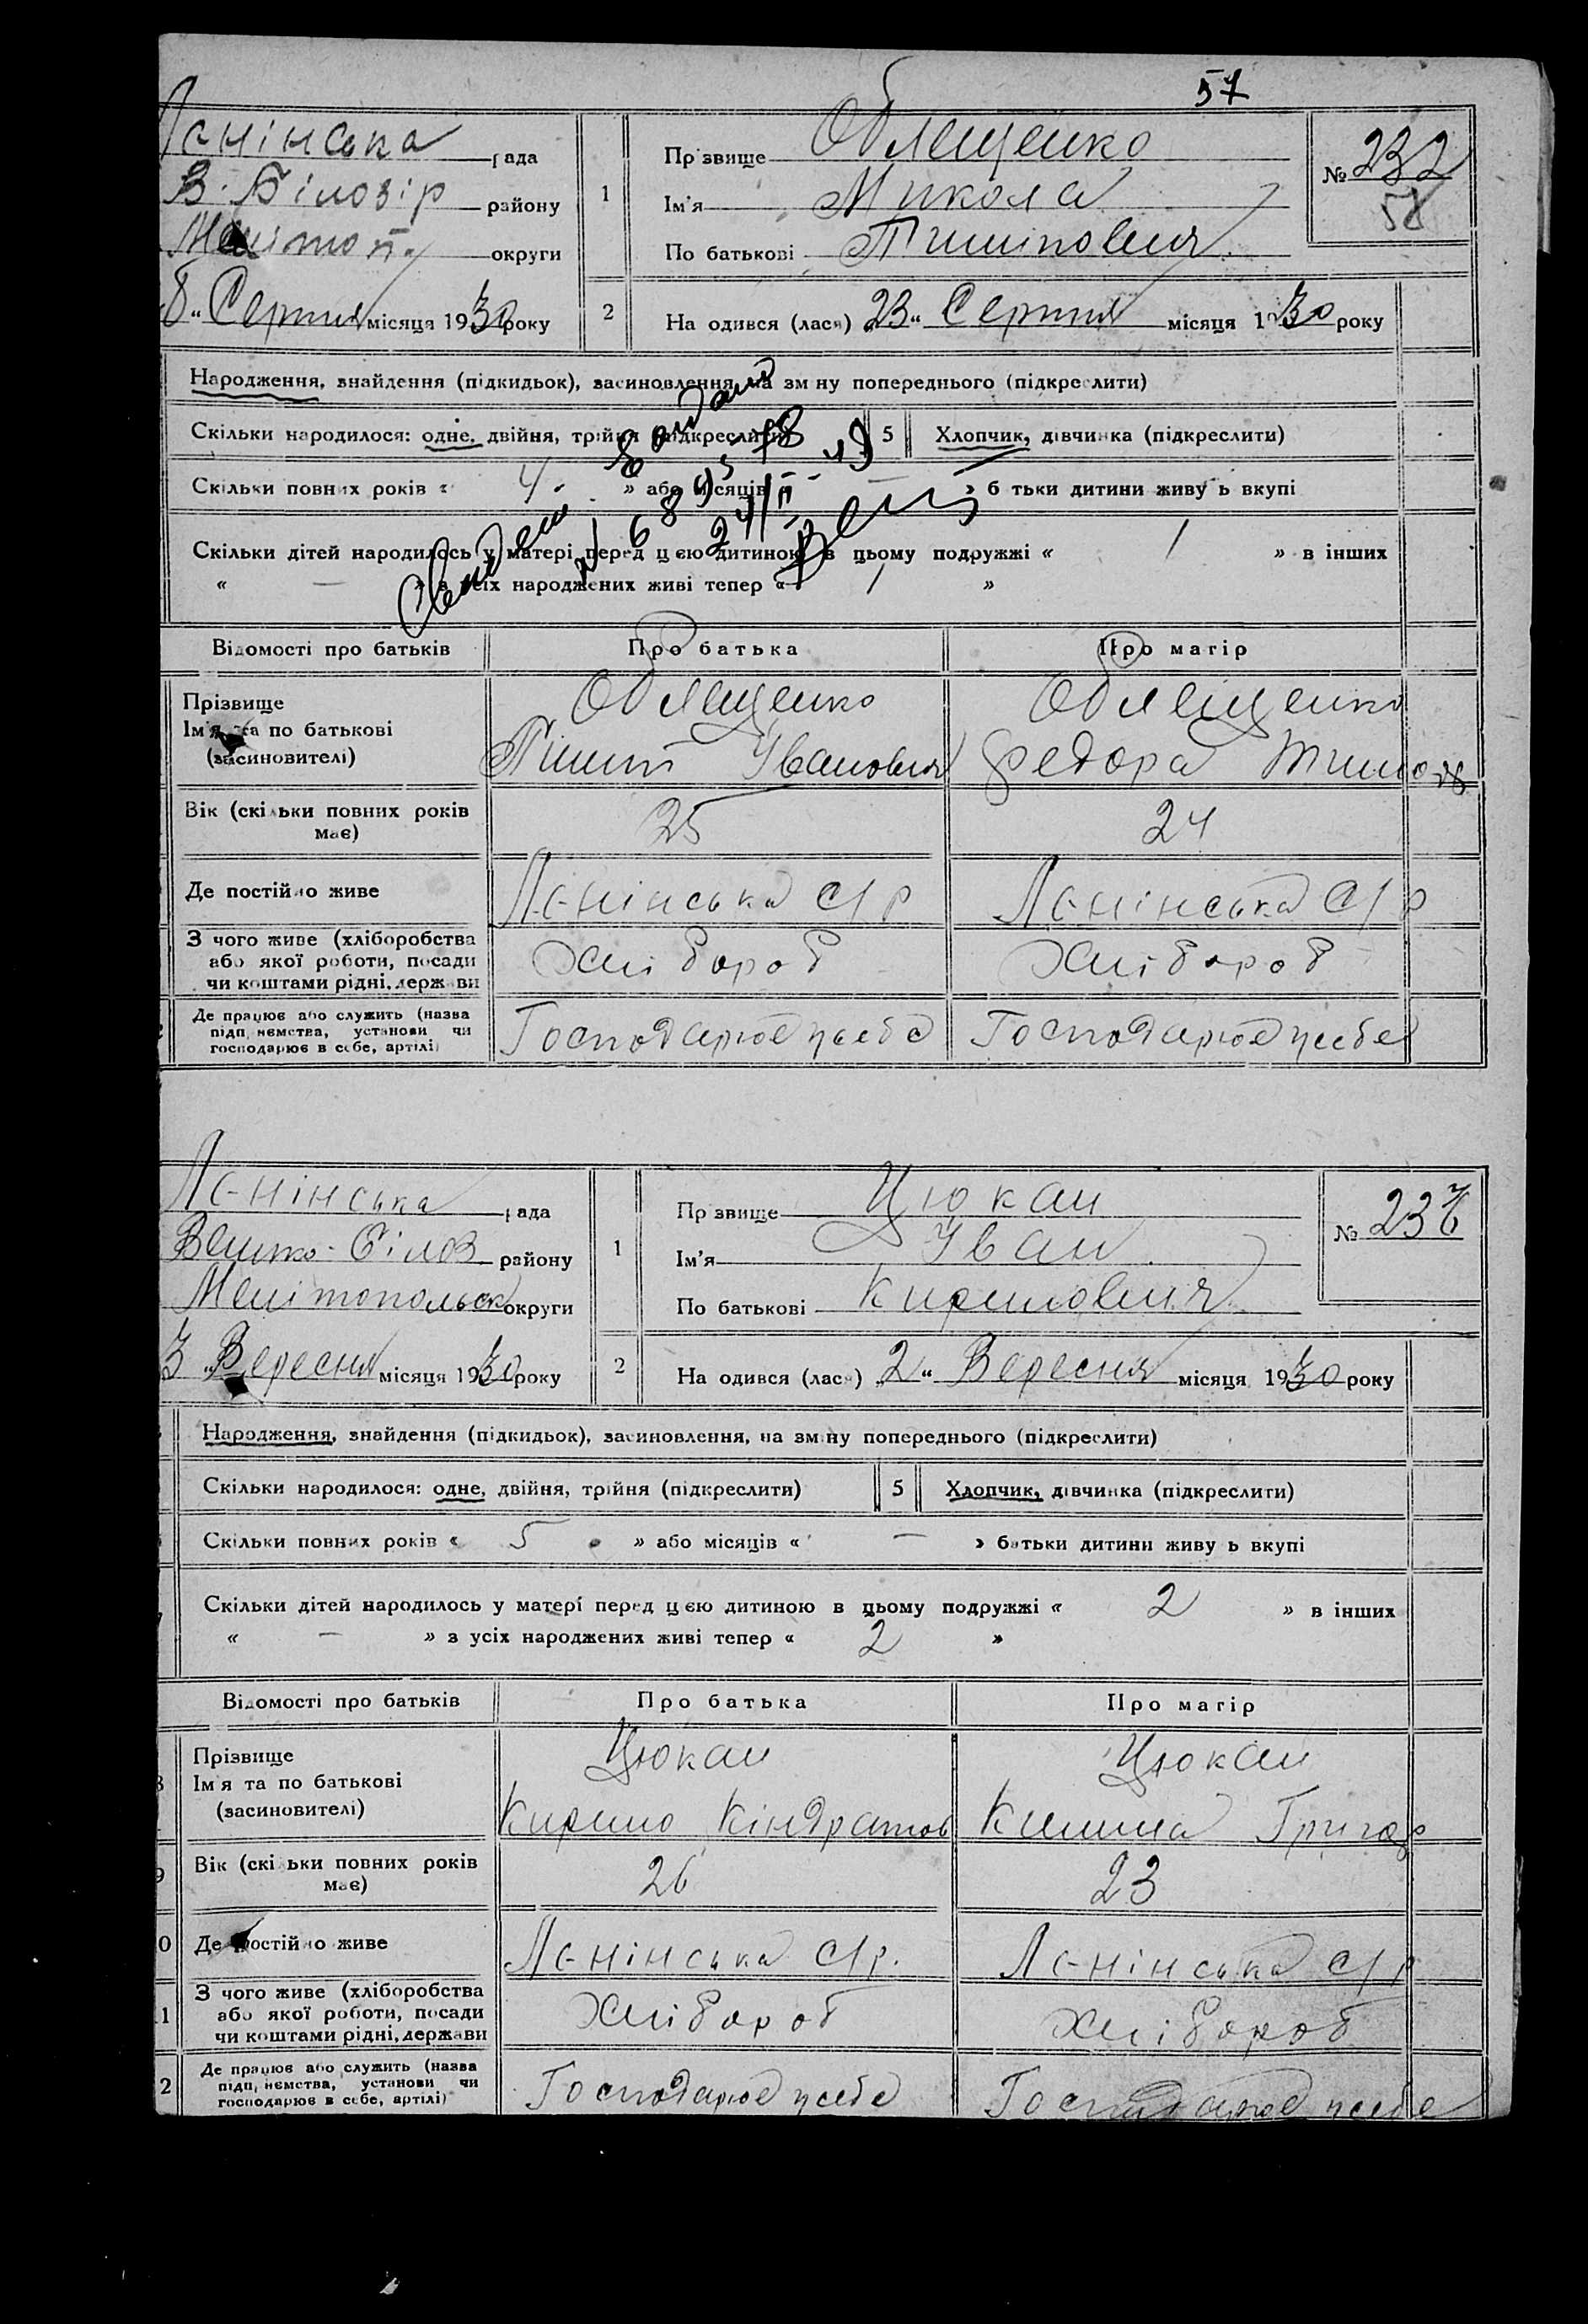 57
Лєнінська рада
В. Білозір району
Меліточ. округи
8 „ Серпня місяця 1930 року
1
Пр звище Облещенко
Ім'я Микола
По батькові Пилипович
№ 232
58
2
На одився (лася) „23„ Серпня місяця 1930 року
Народження, знайдення (підкидьок), засиновлення, на зм ну попереднього (підкреслити)
Скільки народилося: одне, двійня, трійня (підкреслити)
5 Хлопчик, дівчинка (підкреслити)
Скільки повних років « 4 » або місяців « — » б тьки дитини живу ь вкупі
Скільки дітей народилось у матері перед ц єю дитиною в цьому подружжі « 1 » в інших
« — » з усіх народжених живі тепер « 1 »
Відомості про батьків Про батька Про матір
Прізвище Облещенко Облещенко
Ім'я та по батькові Пилип Іванович Федора Тимоф
(засиновителі)
Вік (скі ьки повних років 25 24
має)
Де постійно живе Лєнінська С/р Лєнінська С/р
З чого живе (хліборобства Хлібороб Хлібороб
або якої роботи, посади
чи коштами рідні, держави
Де працює або служить (назва Господарює у себе Господарює у себе
підп ємства, установи чи
господарює в себе, артілі)
Лєнінська рада
Велико-Білоз району
Мелітопольськ округи
3 „Вересня місяця 1930 року
1
Пр звище Цюкан
Ім'я Іван
По батькові Кирилович
№ 237
2
На одився (лася) „2„ Вересня місяця 1930 року
Народження, знайдення (підкидьок), засиновлення, на зм ну попереднього (підкреслити)
Скільки народилося: одне, двійня, трійня (підкреслити)
5 Хлопчик, дівчинка (підкреслити)
Скільки повних років « 5 » або місяців « — » батьки дитини живу ь вкупі
Скільки дітей народилось у матері перед ц єю дитиною в цьому подружжі « 2 » в інших
« — » з усіх народжених живі тепер « 2 »
Відомості про батьків Про батька Про матір
Прізвище Цюкан Цюкан
Ім'я та по батькові Кирило Кіндратов Килина Григор
(засиновителі)
Вік (скі ьки повних років 26 23
має)
Де постійно живе Лєнінська С/р. Лєнінська С/р
З чого живе (хліборобства Хлібороб Хлібороб
або якої роботи, посади
чи коштами рідні, держави
Де працює або служить (назва Господарює у себе Господарює у себе
підп ємства, установи чи
господарює в себе, артілі)